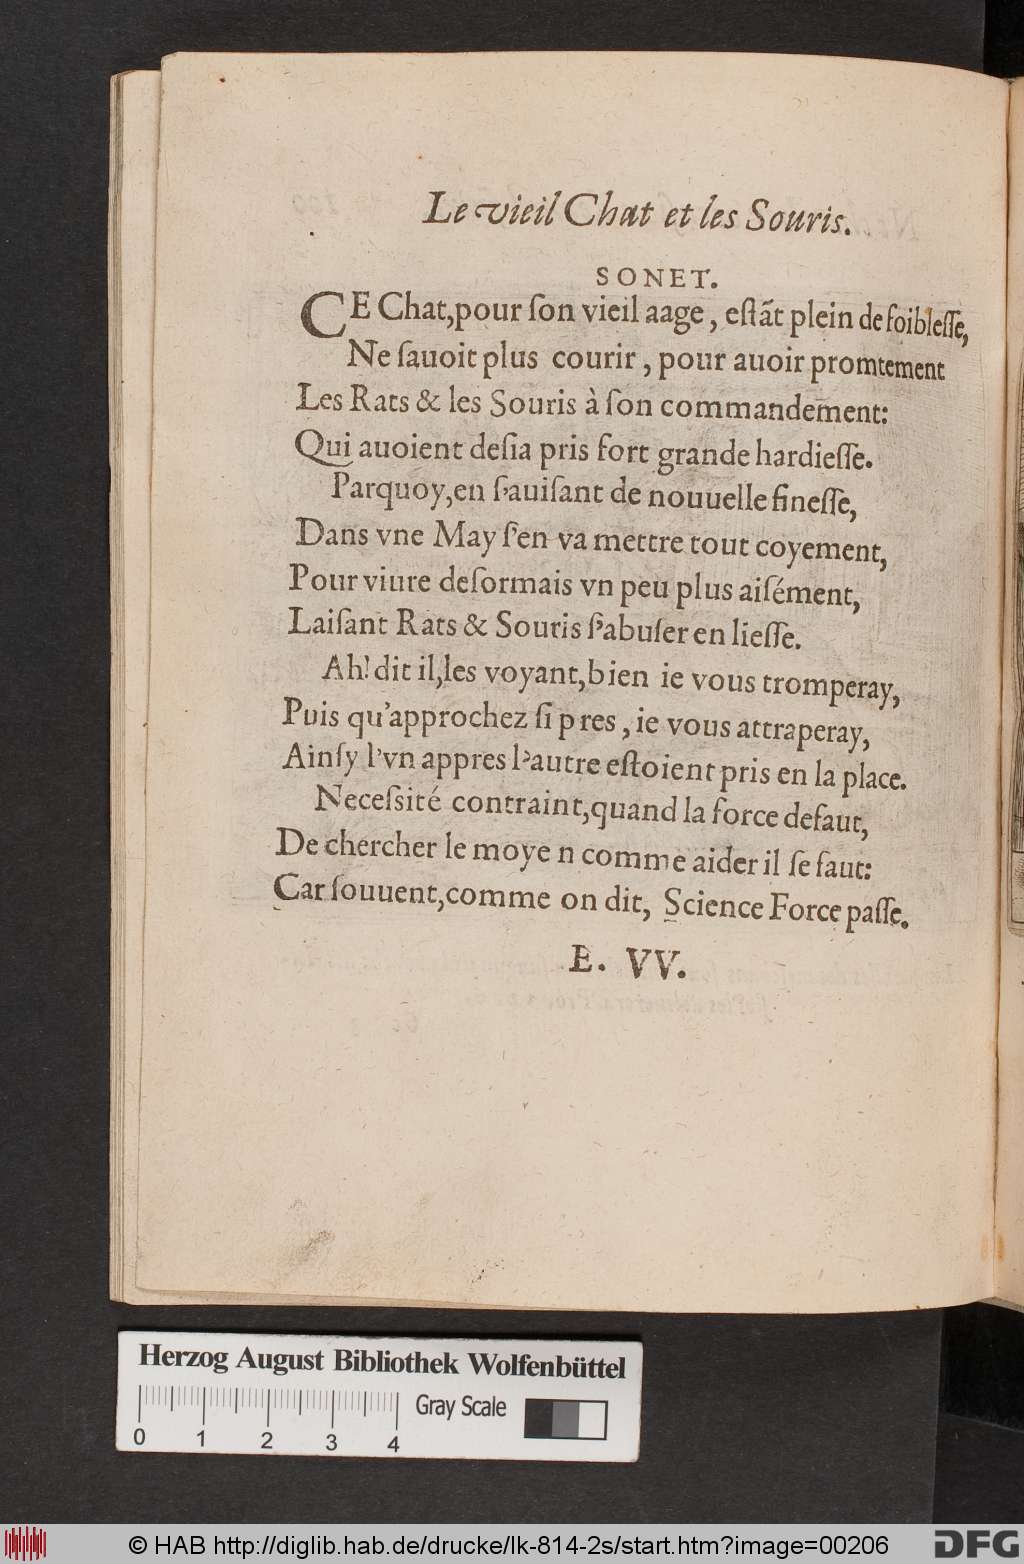 Le vieil Chat et les Souris.
SONET.
CE Chat,pour ſon vieil aage, eſtãt plein de foibleſſe,
Ne ſauoit plus courir, pour auoir promtement
Les Rats & les Souris à ſon commandement:
Qui auoient deſia pris fort grande hardieſſe.
Parquoy,en ſ'auiſant de nouuelle fineſſe,
Dans vne May ſ'en va mettre tout coyement,
Pour viure deſormais vn peu plus aiſément,
Laiſant Rats & Souris ſ'abuſer en lieſſe.
Ah! dit il,les voyant,bien ie vous tromperay,
Puis qu'approchez ſi pres, ie vous attraperay,
Ainſy l'vn appres l'autre eſtoient pris en la place.
Neceſsité contraint,quand la force defaut,
De chercher le moye n comme aider il ſe faut:
Car ſouuent,comme on dit, Science Force paſſe.
E. VV.
Herzog August Bibliothek Wolfenbüttel
Gray Scale
0 1 2 3 4
© HAB http://diglib.hab.de/drucke/lk-814-2s/start.htm?image=00206
DFG